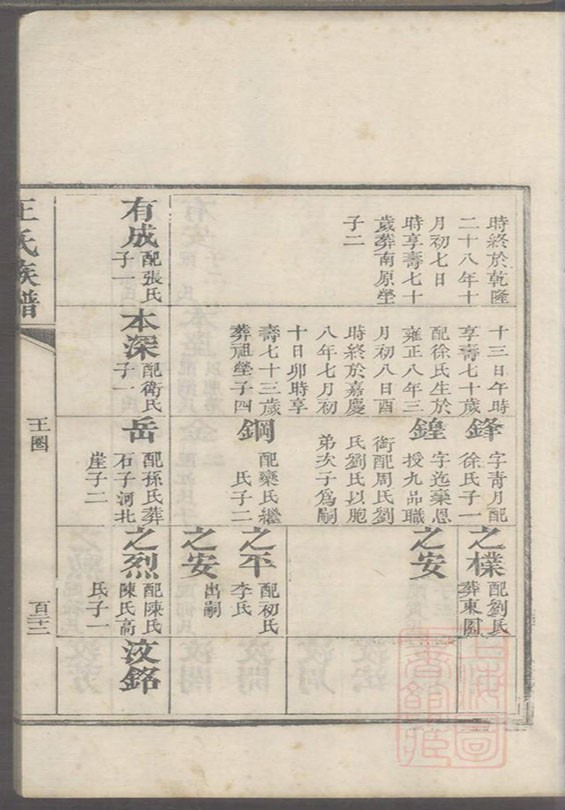 時終於乾隆
二十八年十
月初七日
時享壽七十
歲葬南原塋
子二
有成
配張氏
子一
十三日午時
享壽七十歲
配徐氏生於
雍正八年三
月初八日酉
時終於嘉慶
八年七月初
十日卯時享
壽七十三歲
葬祖塋子四
本深
配衛氏
子一
鋒
字青月配
徐氏子一
鍠
字迄藥恩
授九品職
銜配周氏劉
氏劉氏以胞
弟次子為嗣
鋼
配藥氏繼
氏子二
岳
配孫氏葬
石子河北
崖子二
之樸
配劉氏
葬東園
之安
之平
配初氏
李氏
之安
出嗣
之烈
配陳氏
陳氏高
氏子一
汝銘
王氏族譜
王圈
百三十二
上海圖
書館藏